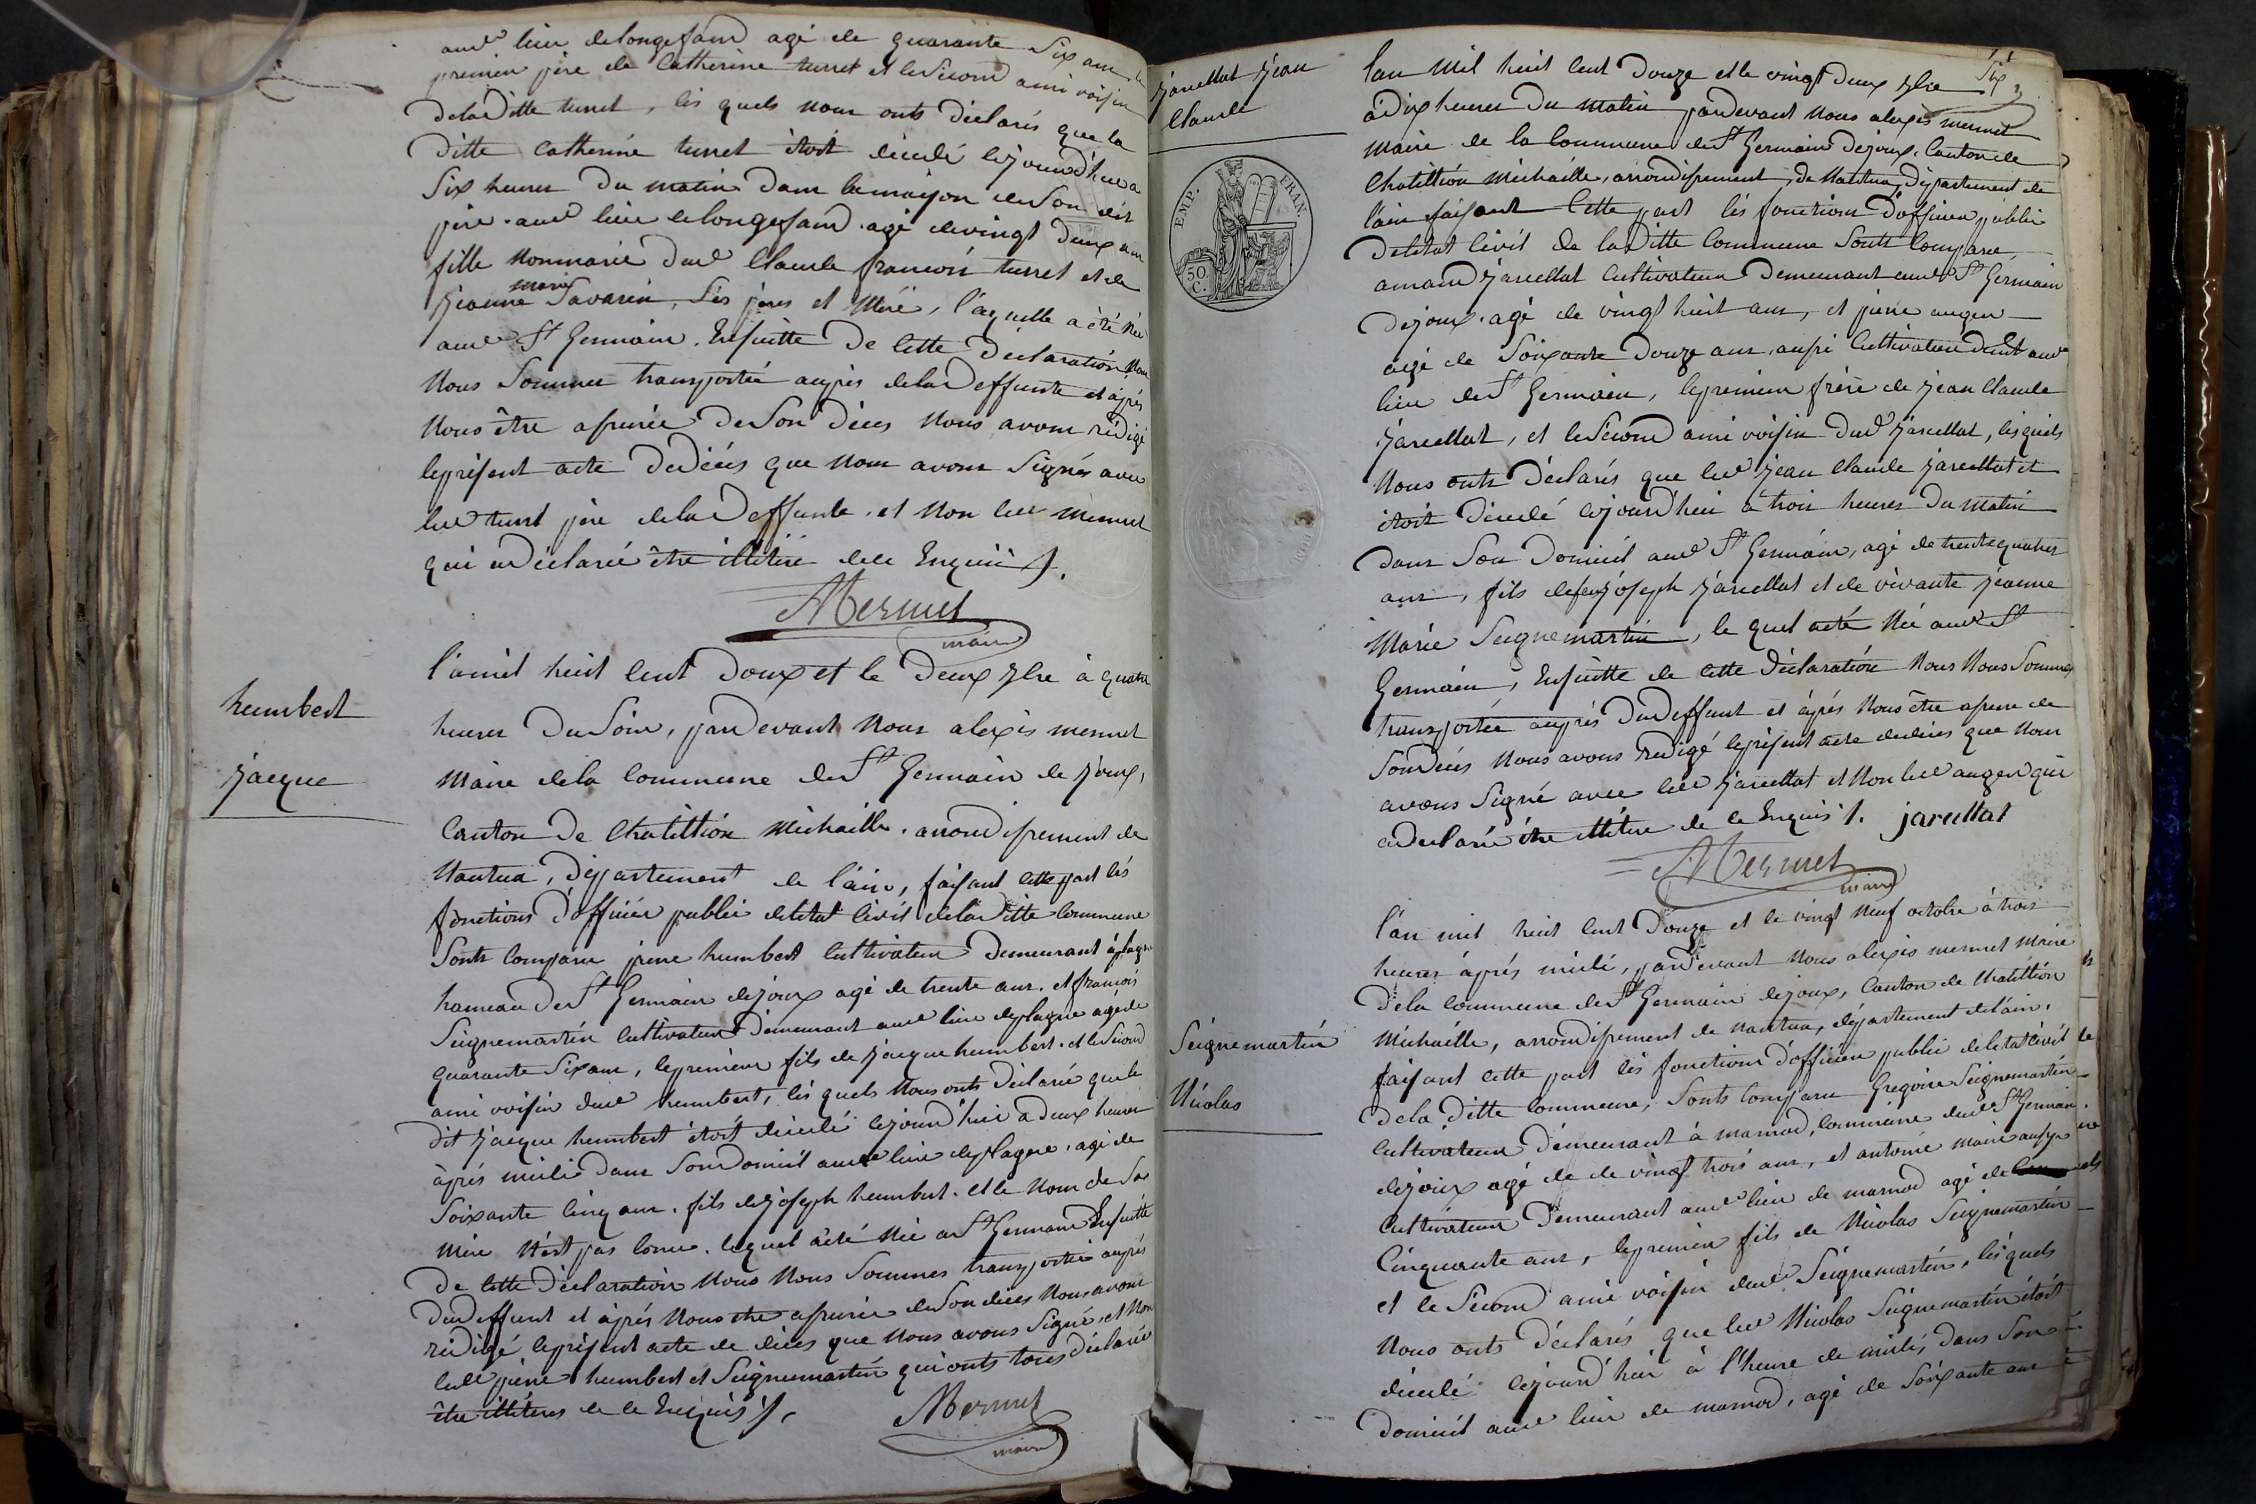 aud lieu de longefand agé de quarante six ans, le
premier père de Catherine turret et le second ami voisin
de la ditte turret, lés quels nous onts déclarés que la
ditte catherine turret étoit décédé cejourd'hui a
six heures du matin dans la maison de son dit
père aud lieu de longefand agé de vingt deux ans
fille nonmarié dud Claude francois turret et de
jeanne marie Savarin, sés peres et méré, laquelle a été née
aud St Germain. Ensuitte de cette déclaration Nous
Nous sommes transportée auprès de lad deffunte et après
Nous être assurée de son décès Nous avons rédigé
le présent acte de décés que nous avons signés avec
led turret père de lad deffunte et non led mermet
qui a déclaré être illitéré de ce Enquis
AMermet
maire
humbert
jacque
l'an mil huit cent douze et le deux 7bre à quatre
heures du soir, pardevant Nous alexis mermet
Maire de la commune de St Germain de joux,
Canton de Chatillion Michaille, arrondissement de
Nantua, département de l'ain, faisant cette part lés
fonctions d'officier public de l'etat civil de la ditte commune
Sonts comparu pierre humbert cultivateur demeurant à plagne
hameau de St Germain de joux agé de trente ans, et francois
Seignemartin cultivateur demeurant aud lieu de plagne agé de
quarante six ans, le premier fils de jacque humbert et le second
ami voisin dud humbert, lés quels Nous onts déclaré que le
dit jacque humbert étoit décédé cejourd'hui a deux heures
après midi dans son domicil aud lieu de plagne, agé de
Soixante cinq ans, fils de joseph humbert et le nom de sa
mère n'est pas connu, lequel a été née a St Germain Ensuitte
de cette déclaration Nous Nous sommes transportée auprés
dud deffunt et après Nous être assurée de son décés Nous avons
rédigé le présent acte de décés que Nous avons signé, et Non
led pierre humbert et Seignemartin qui onts tous déclarée
être illitéres de ce Enquis
AMermet
maire
jarcellat jean
Claude
EMP. FRAN.
50 C.
Six
l'an Mil huit cent Douze et le vingt deux 7bre
à dix heures du matin pardevant Nous alexis mermet
maire de la commune de St Germain de joux, Canton de
Chatillion Michaille, arrondissement de Nantua, département de
l'ain faisant cette part lés fonctions d'officier public
de l'etat civil de la ditte Commune sonts comparu
amand jarcellat cultivateur demeurant aud St Germain
de joux agé de vingt huit ans, et pierre auger
agé de soixante douze ans, aussi cultivateur dudt aud
lieu de St Germain, le premier frère de jean Claude
jarcellat, et le second ami voisin dud jarcellat, lesquels
Nous onts déclarés que led jean Claude jarcellat et
étoit décédé cejourd'hui à trois heures du matin
dans son domicil aud St Germain, agé de trente quatre
ans, fils de feu joseph jarcellat et de vivante jeanne
Marie Seignemartin, le quel a été Née aud St
Germain, Ensuitte de cette déclaration Nous Nous sommes
transportée auprés dud deffunt et aprés Nous être assuré de
son décés Nous avons rédigé le présent acte de décés que Nous
avons signé avec led jarcellat et Non led auger qui
a déclaré être illitére de ce Enquis. jarcellat
AMermet
maire
Seignemartin
Nicolas
l'an mil huit cent douze et le vingt Neuf octobre à trois
heures après midi, pardevant Nous alexis mermet Maire
de la commune de St Germain de joux, Canton de Chatillion
Michaille, arrondissement de Nantua, département de l'ain,
faisant cette part lés fonctions d'officier public de l'etat civil
de la ditte commune, Sonts comparu Gregoire Seignemartin
cultivateur demeurant à marnod, commune dud St Germain
de joux agé de de vingt trois ans, et antoine maire aussi
cultivateur demeurant aud lieu de marnod agé de
Cinquante ans, le premier fils de Nicolas Seignemartin
et le Second ami voisin dud Seignemartin, lés quels
Nous onts déclarés que led Nicolas Seignemartin étoit
décédé cejourd'hui à l'heure de midi, dans son
domicil aud lieu de marnod, agé de soixante ans